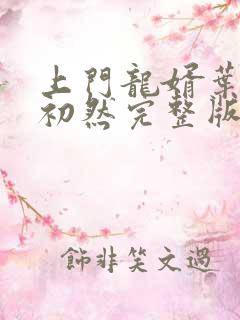 上門龍婿葉
初然完整版
飾非笑文過